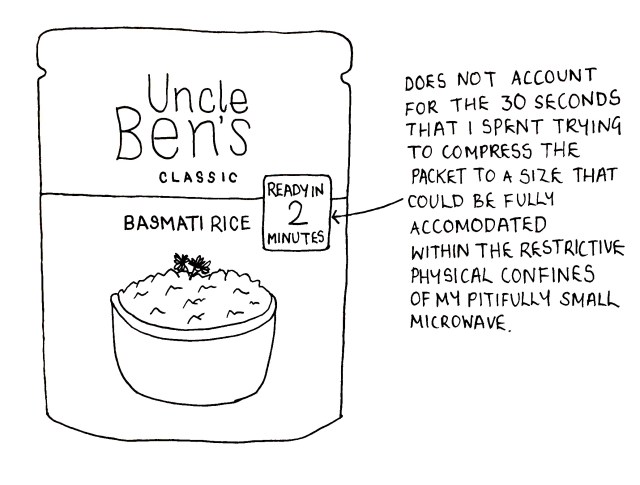 Uncle
Ben's
CLASSIC
READY IN
2
MINUTES
BASMATI RICE
DOES NOT ACCOUNT
FOR THE 30 SECONDS
THAT I SPENT TRYING
TO COMPRESS THE
PACKET TO A SIZE THAT
COULD BE FULLY
ACCOMODATED
WITHIN THE RESTRICTIVE
PHYSICAL CONFINES
OF MY PITIFULLY SMALL
MICROWAVE.